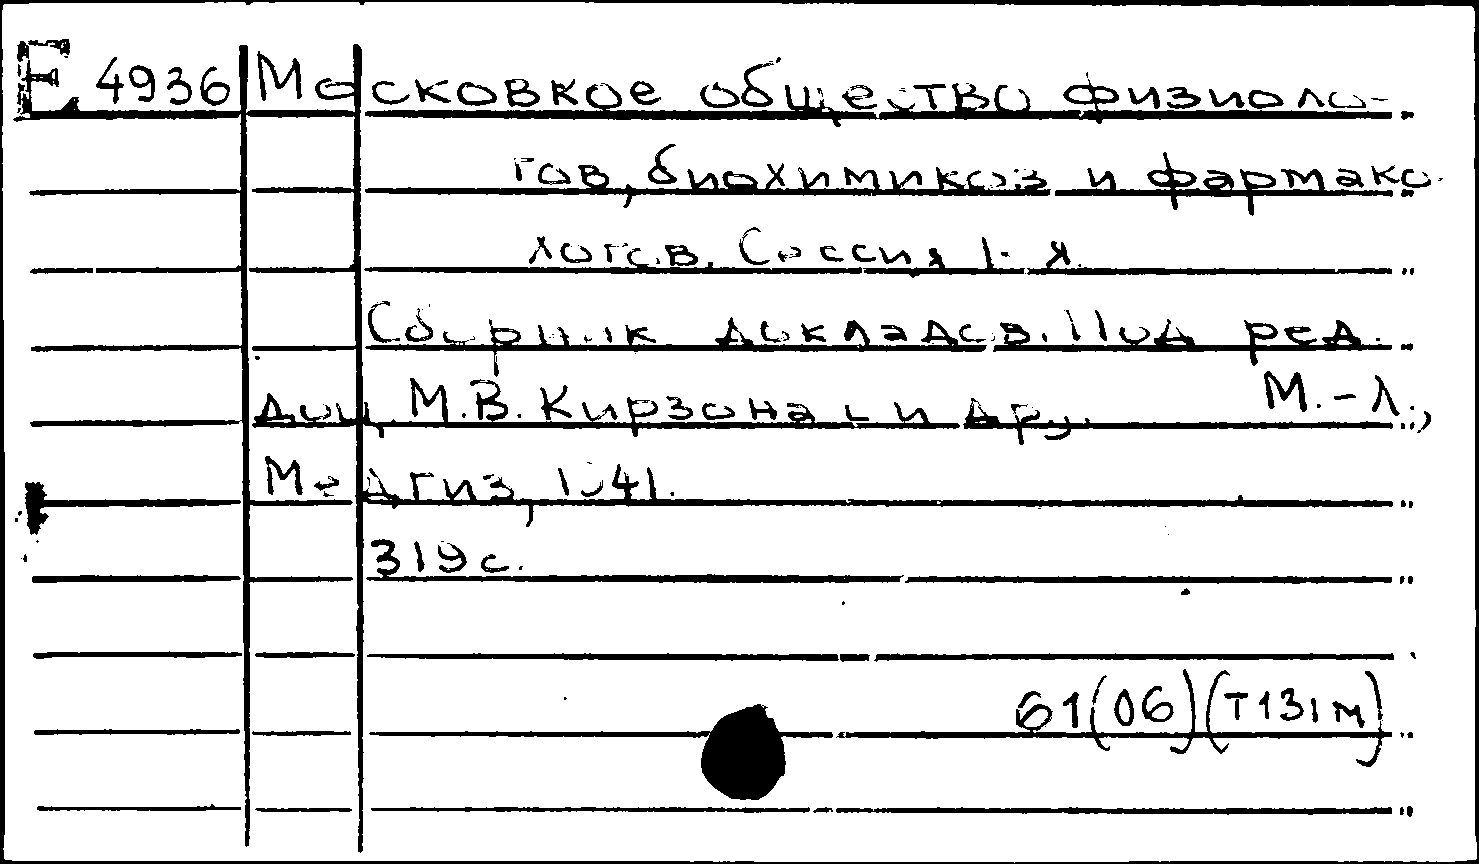 Е 4936 Московкое общество физиоло-
гов, биохимиков и фармако-
логов. Сессия 1-я.
Сборник докладов. Под ред.
доц. М.В. Кирзона и др. М.-Л.,
Медгиз, 1941.
319 с.
61(06)(Т131м)